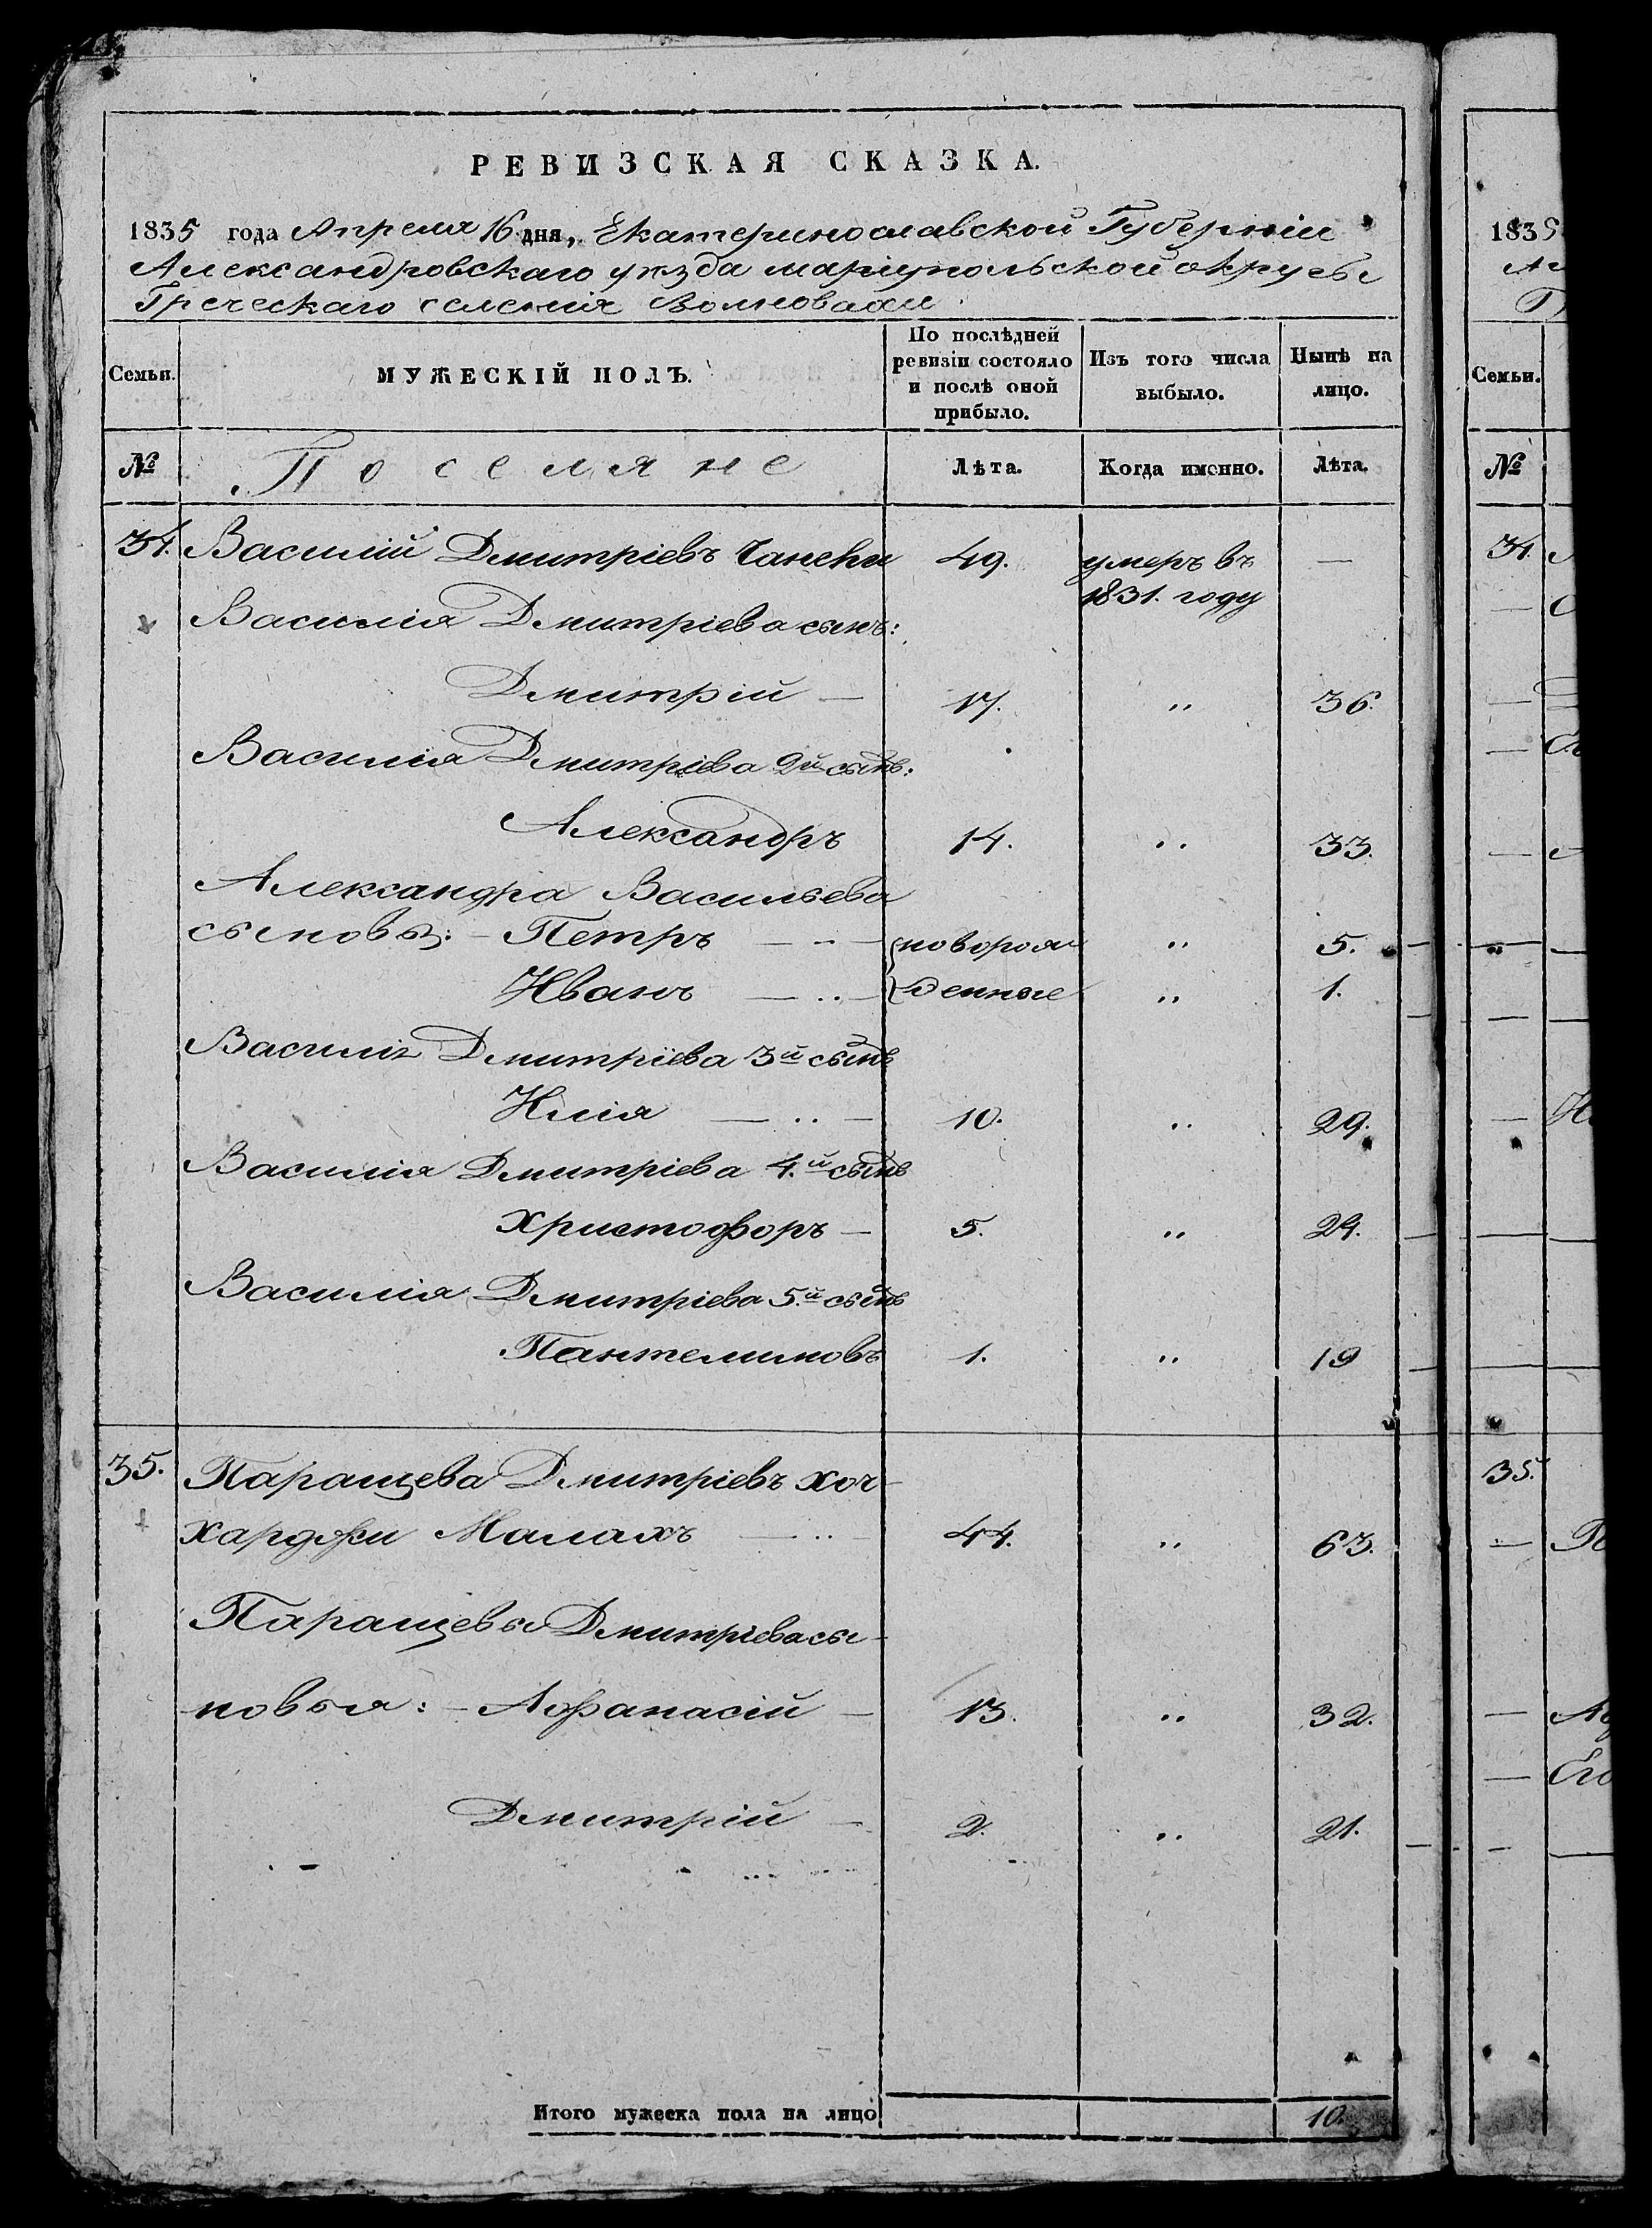 РЕВИЗСКАЯ СКАЗКА.
1835 года Апреля 16 дня, Екатеринославской Губерніи
Александровскаго уѣзда маріупольской округѣ
Греческаго селенія Волновахи
Семьи.
МУЖЕСКІЙ ПОЛЪ.
По послѣдней ревизіи состояло и послѣ оной прибыло.
Изъ того числа выбыло.
Нынѣ на лицо.
№
Поселяне
Лѣта.
Когда именно.
Лѣта.
34. Василій Дмитріевъ 49. умеръ въ —
1831. году
Василія Дмитріева сынъ:
Дмитрій — 17. " 36.
Василія Дмитріева 2й сынъ:
Александръ 14. " 33.
Александра Васильева
сыновья: – Петръ — новорож " 5.
Иванъ — денные " 1.
Василія Дмитріева 3й сынъ
Илія — 10. " 29.
Василія Дмитріева 4.й сынъ
Христофоръ — 5. " 24.
Василія Дмитріева 5.й сынъ
Пантелимонъ 1. " 19
35. Паращева Дмитріевъ Хоч-
харджи Малахъ — 44. " 63.
Паращевы Дмитріева сы-
новья: – Афанасій — 13. " 32.
Дмитрій — 2. " 21.
Итого мужеска пола на лицо 10.
1835
Семьи.
№
34.
35.